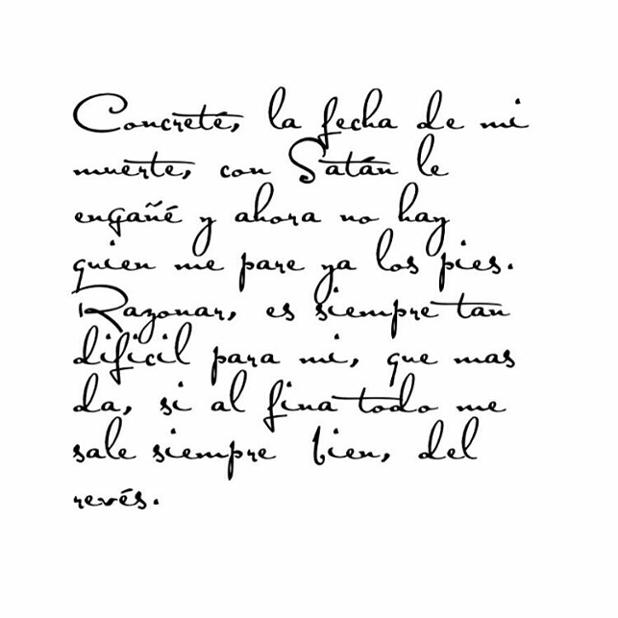 Concreté, la fecha de mi
muerte, con Satán le
engañé y ahora no hay
quien me pare ya los pies.
Razonar, es siempre tan
dificil para mi, que mas
da, si al fina todo me
sale siempre bien, del
revés.